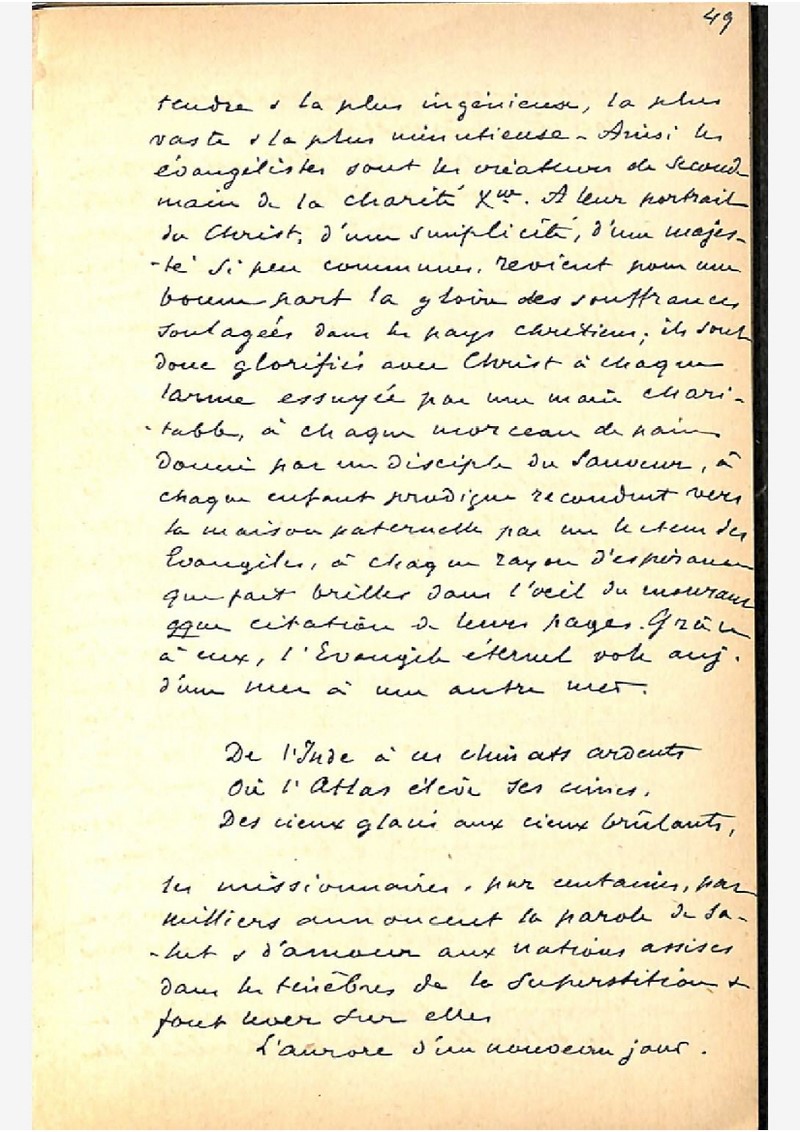 49
tendre & la plus ingénieuse, la plus
vaste & la plus minutieuse - Ainsi les
évangélistes sont les créateurs de seconde
main de la charité Xne. A leur portrait
du Christ, d'une simplicité, d'une majes-
-té si peu communes, revient pour une
bonne part la gloire des souffrances
soulagées dans les pays chrétiens; ils sont
donc glorifiés avec Christ à chaque
larme essuyée par une main chari-
-table, à chaque morceau de pain
donné par un disciple du Sauveur, à
chaque enfant prodigue reconduit vers
la maison paternelle par un lecteur des
Evangiles, à chaque rayon d'espérance
que fait briller dans l'oeil du mourant
qque citation de leurs pages. Grâce
à eux, l'Evangile éternel vole auj.
d'une mer à une autre mer.
De l'Inde à ces climats ardents
Où l'Atlas élève ses cimes,
Des cieux glacés aux cieux brûlants,
les missionnaires, par centaines, par
milliers annoncent la parole de sa-
-lut & d'amour aux nations assises
dans les ténèbres de la superstition &
font lever sur elles
L'aurore d'un nouveau jour.